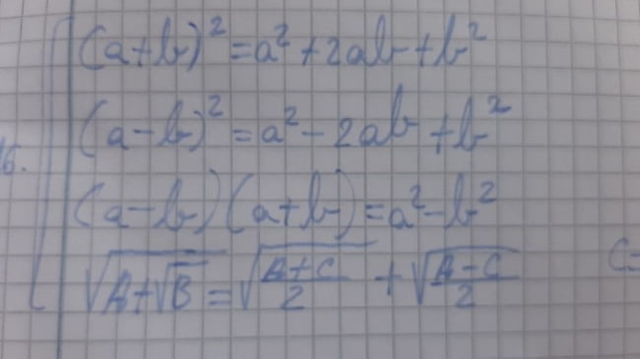 (a+b)²=a²+2ab+b²
(a-b)²=a²-2ab+b²
16.
(a-b)(a+b)=a²-b²
√(A+√B)=√((A+C)/2)+√((A-C)/2) C=